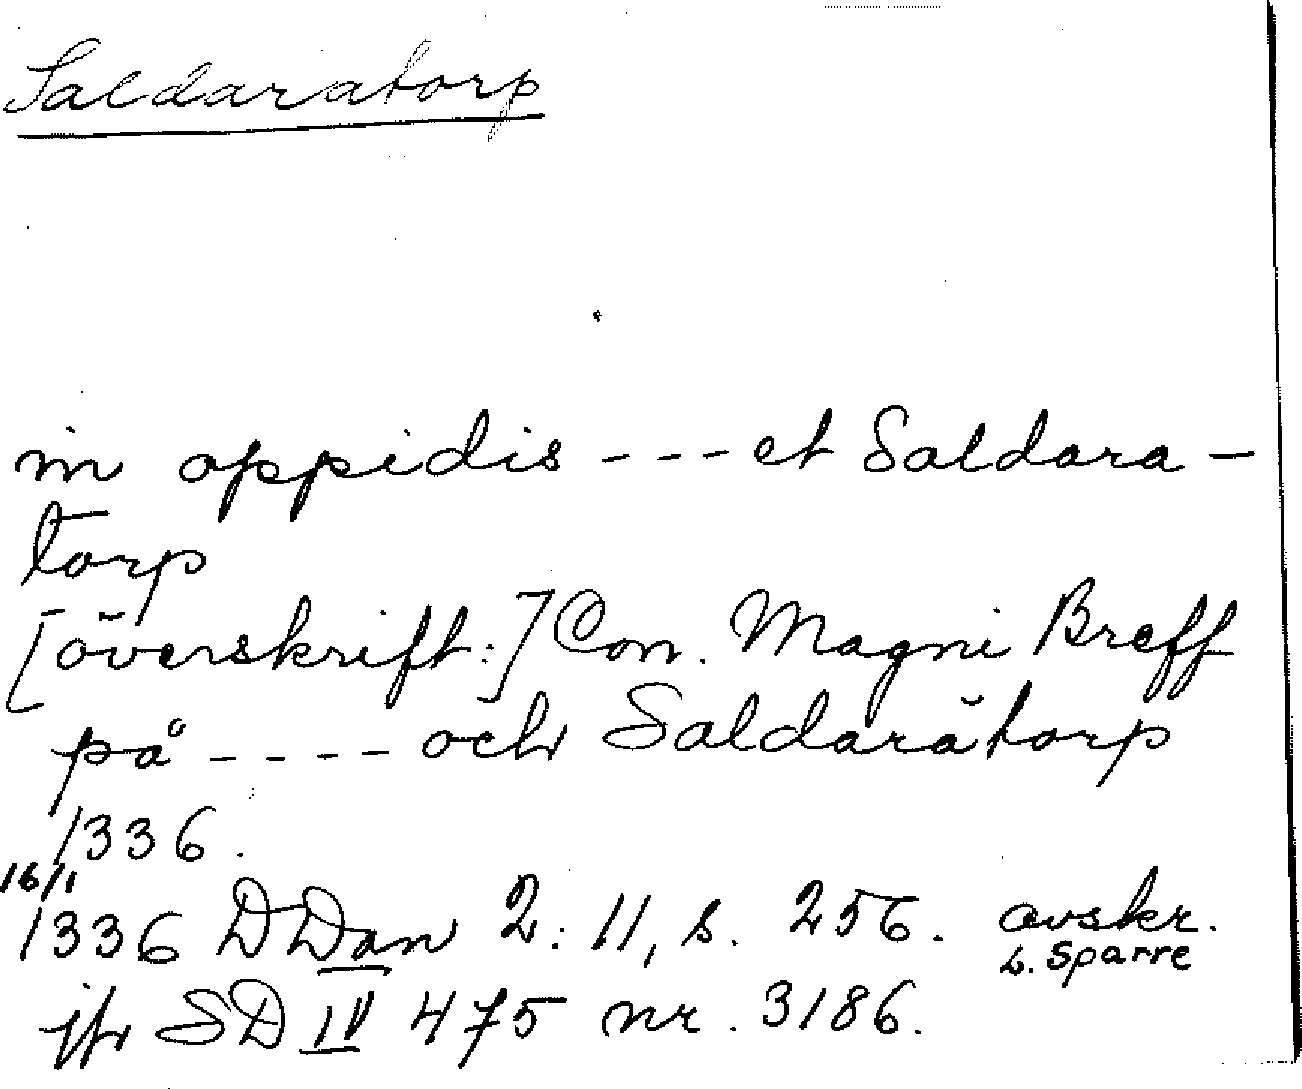 Saldaratorp
in oppidis - - - et Saldara -
torp
[överskrift:] Con. Magni Breff
på - - - - och Saldarătorp
1336.
16/1
1336 DDan 2: 11, s. 256. avskr.
L. Sparre
jfr SD IV 475 nr. 3186.